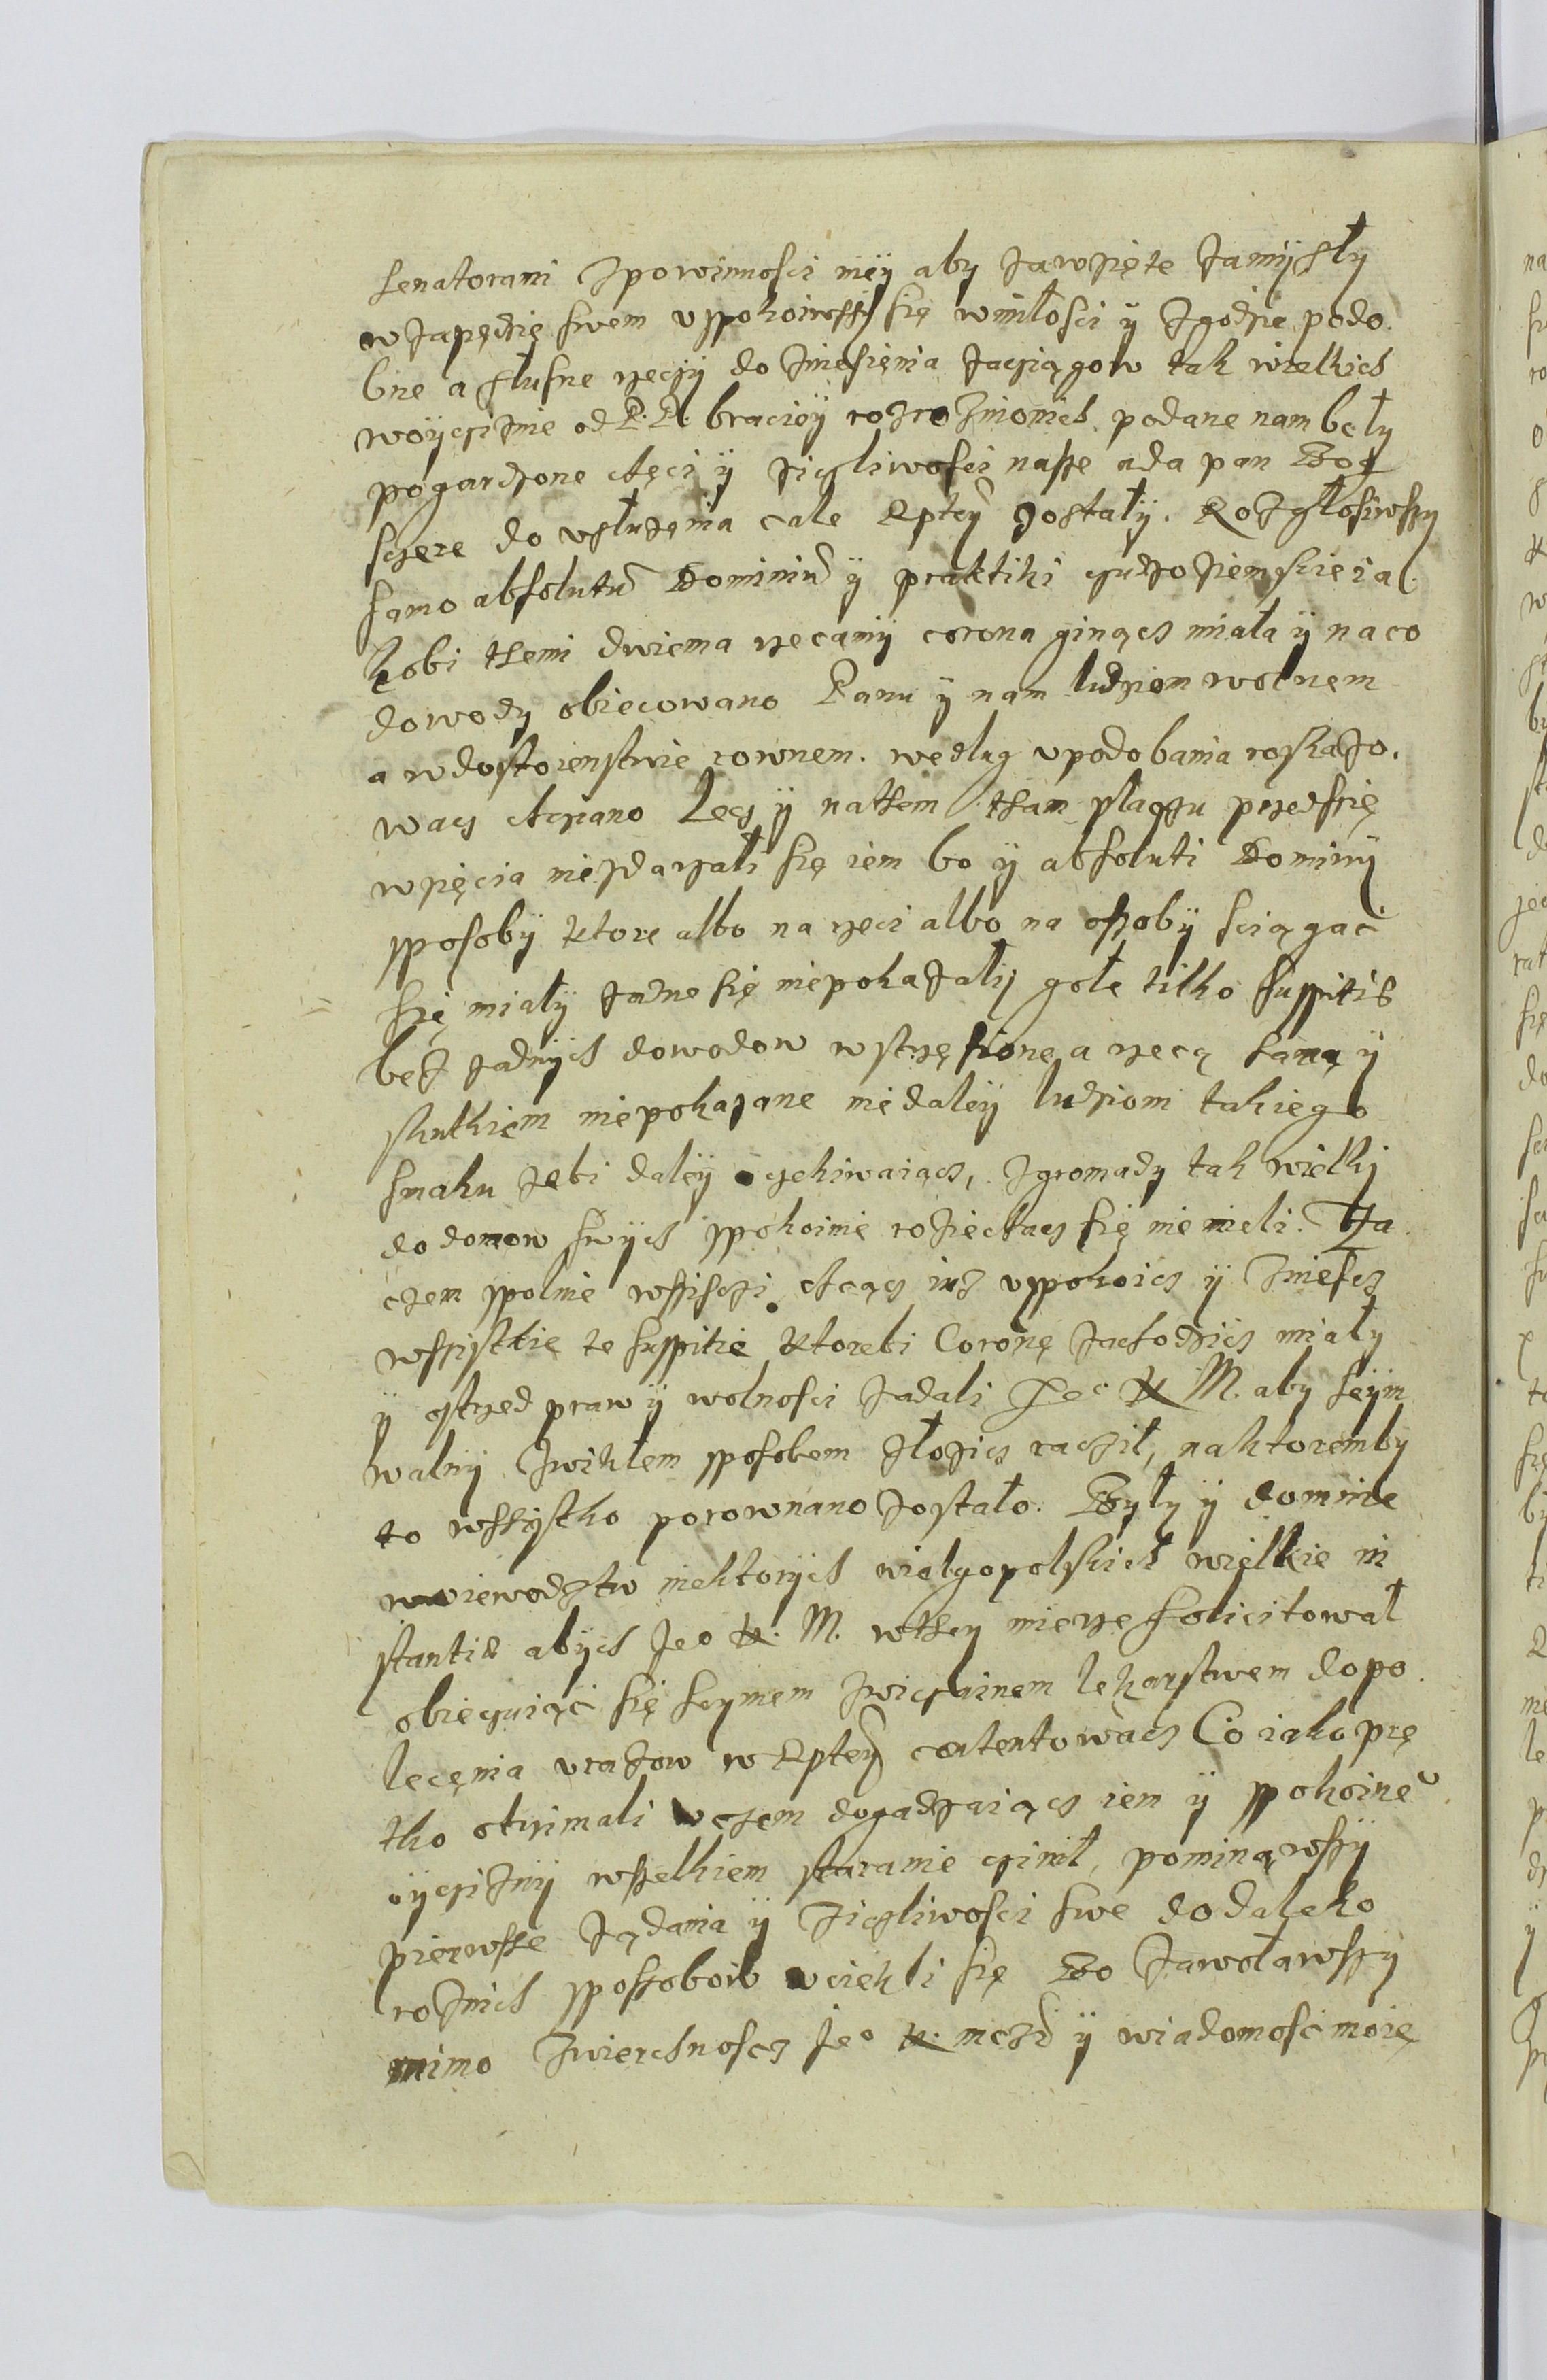 senatorami zpowinnosci mey aby zawzięte zamysły
wzapędzie swem vspokoiwszy się wmiłosci y zgodzie podo.
bne a słusne rzeczy do zniesięnia zaciągow tak wielkich
woyczi znie od P. P. braciey rozroznionich podane nam beły
pogardzone chęci y zicżliwosci nasze a da pan Bog
sczere do vsłużęnia cale Rptey zostały. Rozgłosiwszy
samo absolutu Dominiu y praktiki cudzoziemskie ia
kobi themi dwiema rzecamy corona ginącz miała y na co
dowody obiecowano Panu y nam ludziom wolnem
a wdostoienstwie rownem. wedlug vpodobania roskazo.
wacz chciano Lecz y nathem tham placzu przedsię
wzięcia niezdarzali się iem bo y absoluti Dominy
sposoby ktore albo na rzeci albo na osoby sciągac
się miały zadne się niepokazały gołe tilko suspitie
bez zadnych dowodow wstrzęsione a rzecą samą y
skutkiem niepokazane niedaley ludziom takiego
smaku żebi daley oczekiwaiącz, zgromady tak wielki
do domow swych spokoinie roziechacz się nie mieli. Za
czem spolnie wszisczi chcącz iuz vspokoicz y zniescz
wszystkie te suspitie ktorebi Coronę zachodzicz miały
y ostrzedz praw y wolnosci żadali Jeo K M. aby seym
walny zwikłem sposobem złożicz racził, naktoremby
to wszystko porownano zostało. Były y do mnie
wwoiewodztw niektorych wielgopolskich wielkie in
stantie abych Jeo K. M. wthey mierze solicitował
obiecuiąc się seymem zwiczainem lekarstwem dopo
lecęnia vrazow w Rptey contentowacz Co iako prę
tko otrzimali wczem dogadzaiącz iem y spokoinev
oyczizny wszelkiem staranie czinil, pominąwszy
pierwsze żądania y zicżliwosci swe do daleko
roznich sposobow vciekli się Bo zawoławszy
mimo zwierchnoscz Jeo K. mczi y wiadomosc moię